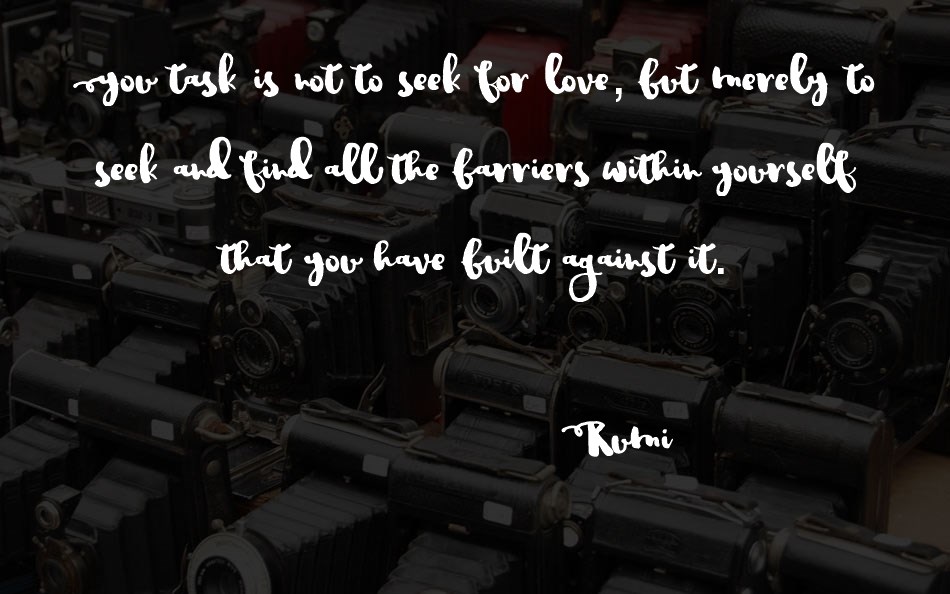 you task is not to seek for love, but merely to
seek and find all the barriers within yourself
that you have built against it.
Rumi